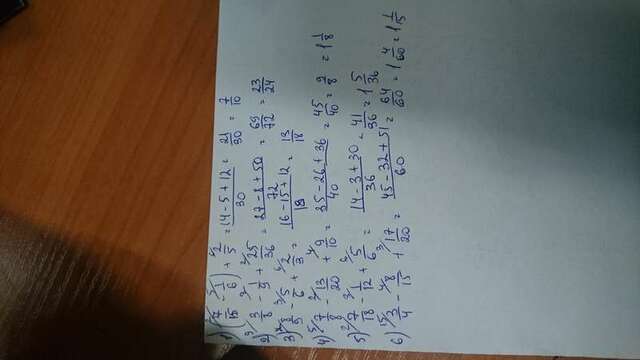 1) (7/15 - 1/6) + 2/5 = (14-5+12)/30 = 21/30 = 7/10
2) 3/8 - 1/9 + 25/36 = (27-8+50)/72 = 69/72 = 23/24
3) 8/9 - 5/6 + 2/3 = (16-15+12)/18 = 13/18
4) 7/8 - 13/20 + 9/10 = (35-26+36)/40 = 45/40 = 9/8 = 1 1/8
5) 7/18 - 1/12 + 5/6 = (14-3+30)/36 = 41/36 = 1 5/36
6) 3/4 - 8/15 + 17/20 = (45-32+51)/60 = 64/60 = 1 4/60 = 1 1/15